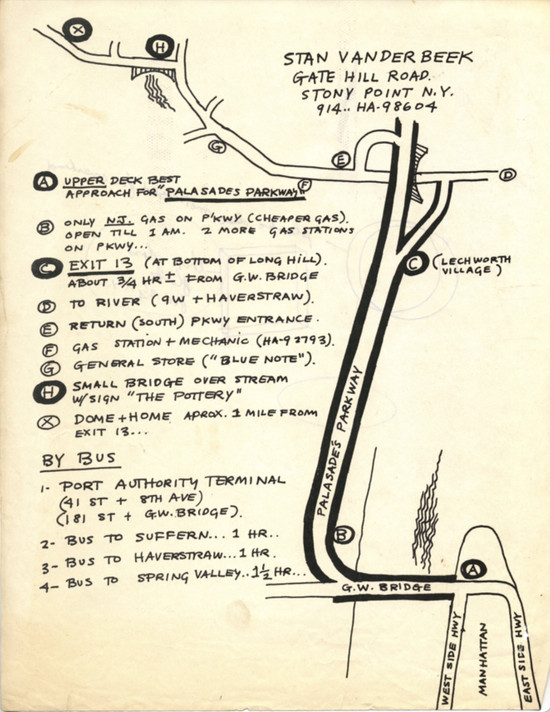 STAN VANDERBEEK
GATE HILL ROAD.
STONY POINT N.Y.
914.. HA-98604
X
H
G
E
F
D
A UPPER DECK BEST
APPROACH FOR "PALASADES PARKWAY"
B ONLY N.J. GAS ON P'KWY (CHEAPER GAS).
OPEN TILL 1 AM. 2 MORE GAS STATIONS
ON PKWY...
C EXIT 13 (AT BOTTOM OF LONG HILL).
ABOUT 3/4 HR ± FROM G.W. BRIDGE
D TO RIVER (9W + HAVERSTRAW).
E RETURN (SOUTH) PKWY ENTRANCE.
F GAS STATION + MECHANIC (HA-93793).
G GENERAL STORE ("BLUE NOTE").
H SMALL BRIDGE OVER STREAM
W/SIGN "THE POTTERY"
X DOME + HOME APROX. 1 MILE FROM
EXIT 13...
C (LECHWORTH
VILLAGE)
PALASADES PARKWAY
BY BUS
1- PORT AUTHORITY TERMINAL
(41 ST + 8TH AVE)
(181 ST + G.W. BRIDGE).
2- BUS TO SUFFERN... 1 HR..
3- BUS TO HAVERSTRAW...1 HR.
4- BUS TO SPRING VALLEY..1 1/2 HR...
B
A
G.W. BRIDGE
WEST SIDE HWY
MANHATTAN
EAST SIDE HWY